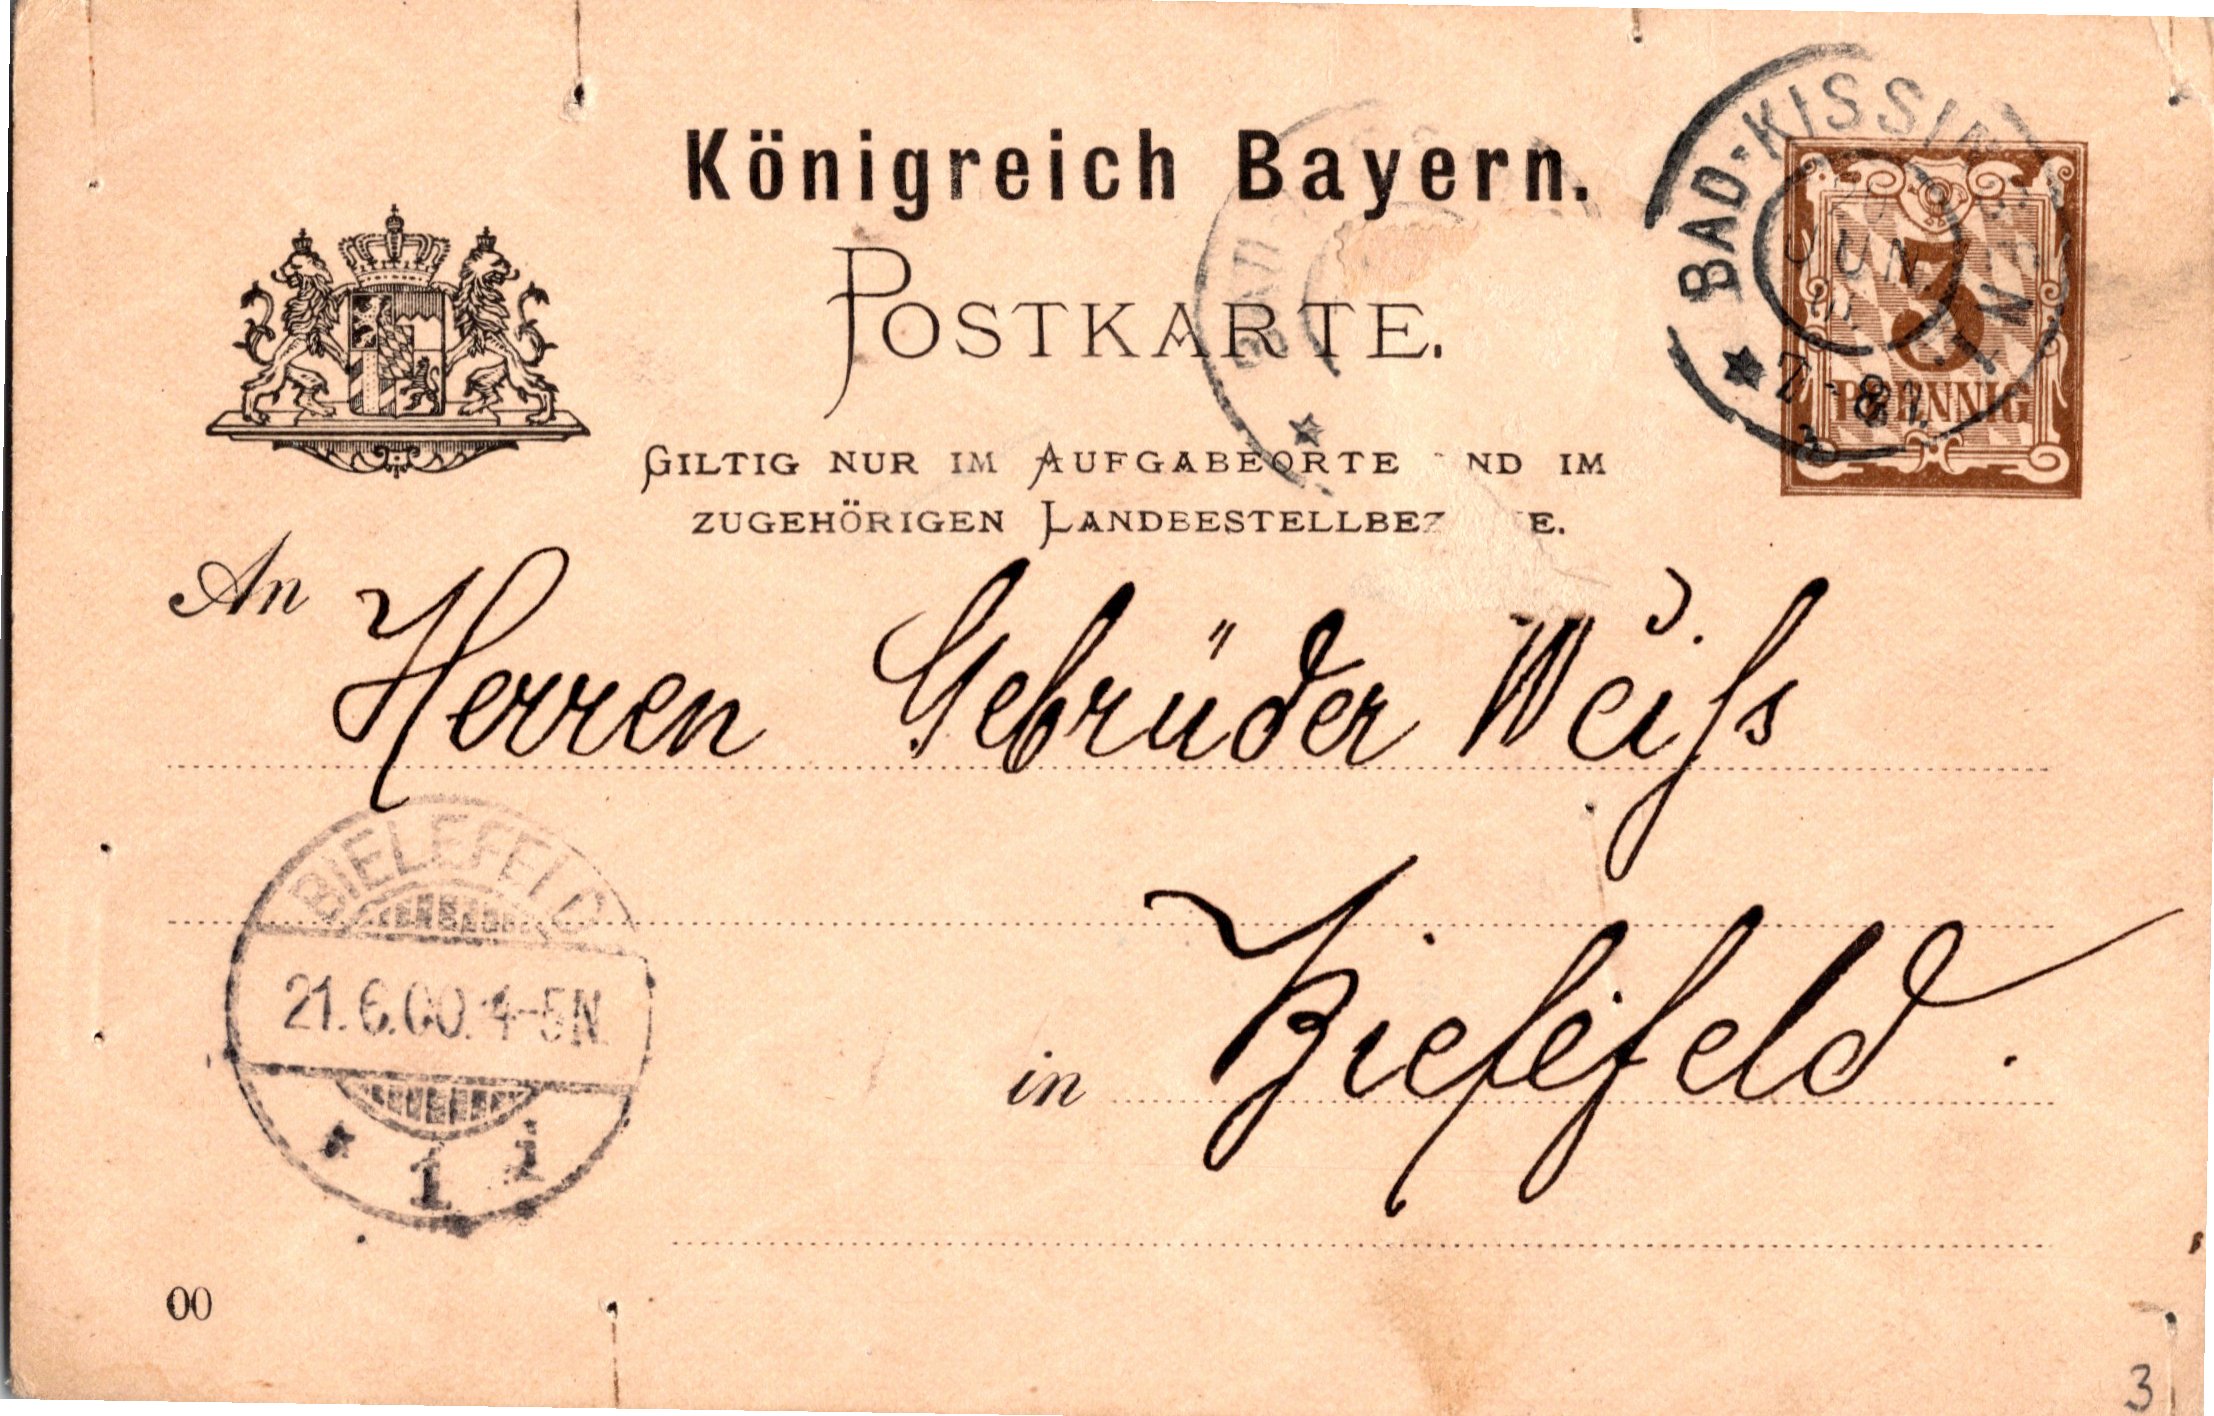 Königreich Bayern.
POSTKARTE.
GILTIG NUR IM AUFGABEORTE ND IM
ZUGEHÖRIGEN LANDBESTELLBEZ E.
BAD-KISSINGEN
JUN
7-8
3
PFENNIG
An Herren Gebrüder Weiſs
BIELEFELD
21.6.00. 4-5N.
* 1 i
in Bielefeld.
00
3